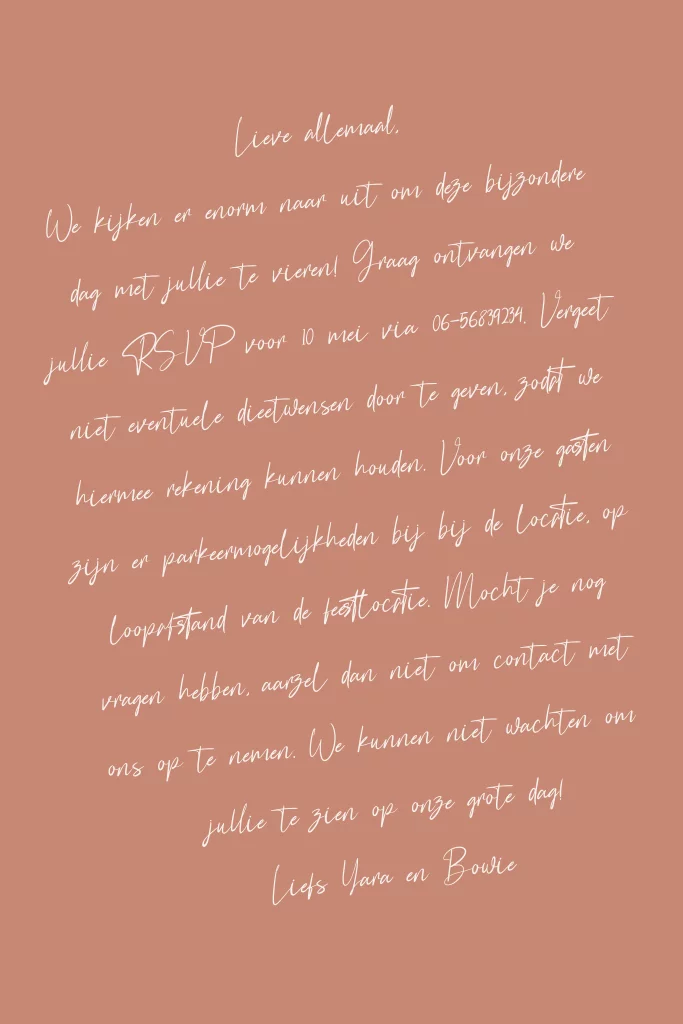 Lieve allemaal,
We kijken er enorm naar uit om deze bijzondere
dag met jullie te vieren! Graag ontvangen we
jullie RSVP voor 10 mei via 06-56839234. Vergeet
niet eventuele dieetwensen door te geven, zodat we
hiermee rekening kunnen houden. Voor onze gasten
zijn er parkeermogelijkheden bij bij de locatie, op
loopafstand van de feestlocatie. Mocht je nog
vragen hebben, aarzel dan niet om contact met
ons op te nemen. We kunnen niet wachten om
jullie te zien op onze grote dag!
Liefs Yara en Bowie